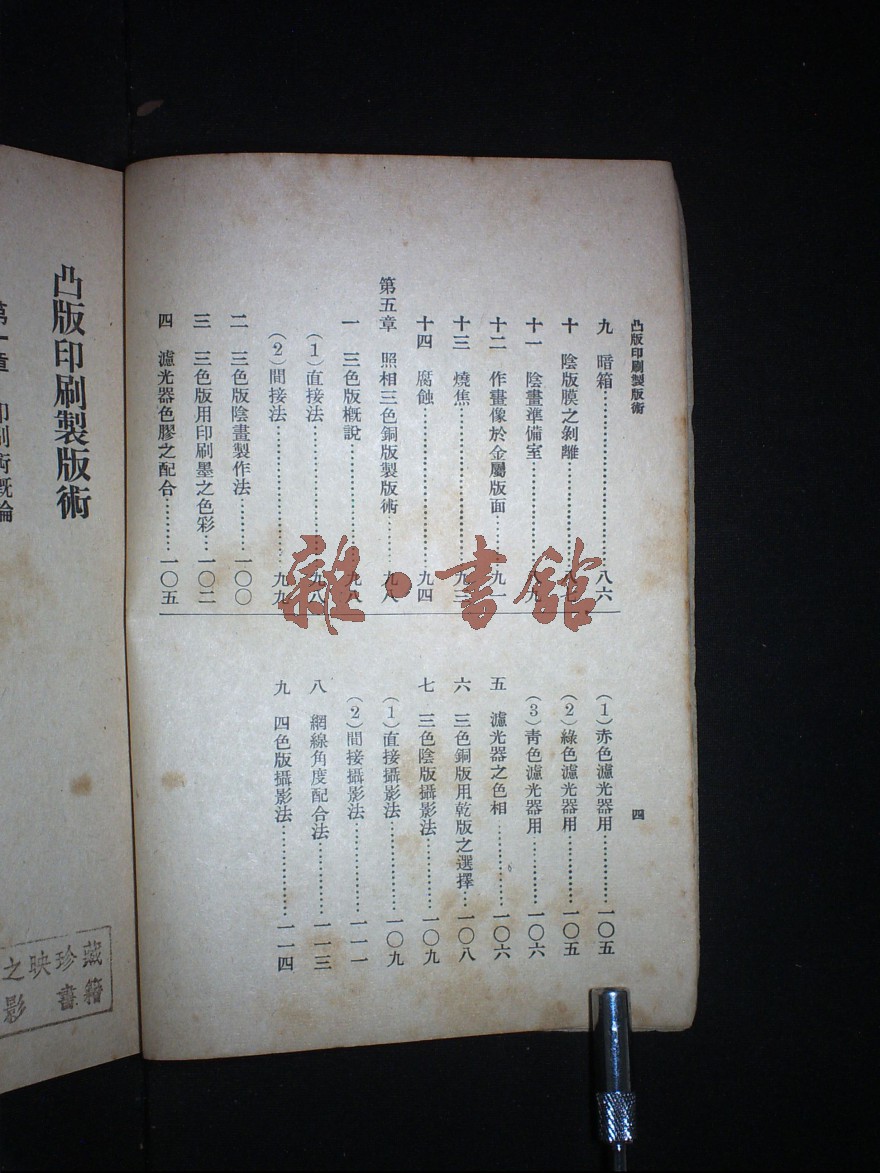 凸版印刷製版術
四
九 暗箱……………………八六
十 陰版膜之剝離……………………八七
十一 陰畫準備室……………………八九
十二 作畫像於金屬版面……………………九一
十三 燒焦……………………九三
十四 腐蝕……………………九四
第五章 照相三色銅版製版術……………………九八
一 三色版概說……………………九八
(1)直接法……………………九八
(2)間接法……………………九九
二 三色版陰畫製作法……………………一〇〇
三 三色版用印刷墨之色彩……………………一〇二
四 濾光器色膠之配合……………………一〇五
(1)赤色濾光器用……………………一〇五
(2)綠色濾光器用……………………一〇五
(3)靑色濾光器用……………………一〇六
五 濾光器之色相……………………一〇六
六 三色銅版用乾版之選擇……………………一〇八
七 三色陰版攝影法……………………一〇九
(1)直接攝影法……………………一〇九
(2)間接攝影法……………………一一一
八 網線角度配合法……………………一一三
九 四色版攝影法……………………一一四
凸版印刷製版術
第一章 印刷術概論
雜·書館
藏籍
珍書
映
之影